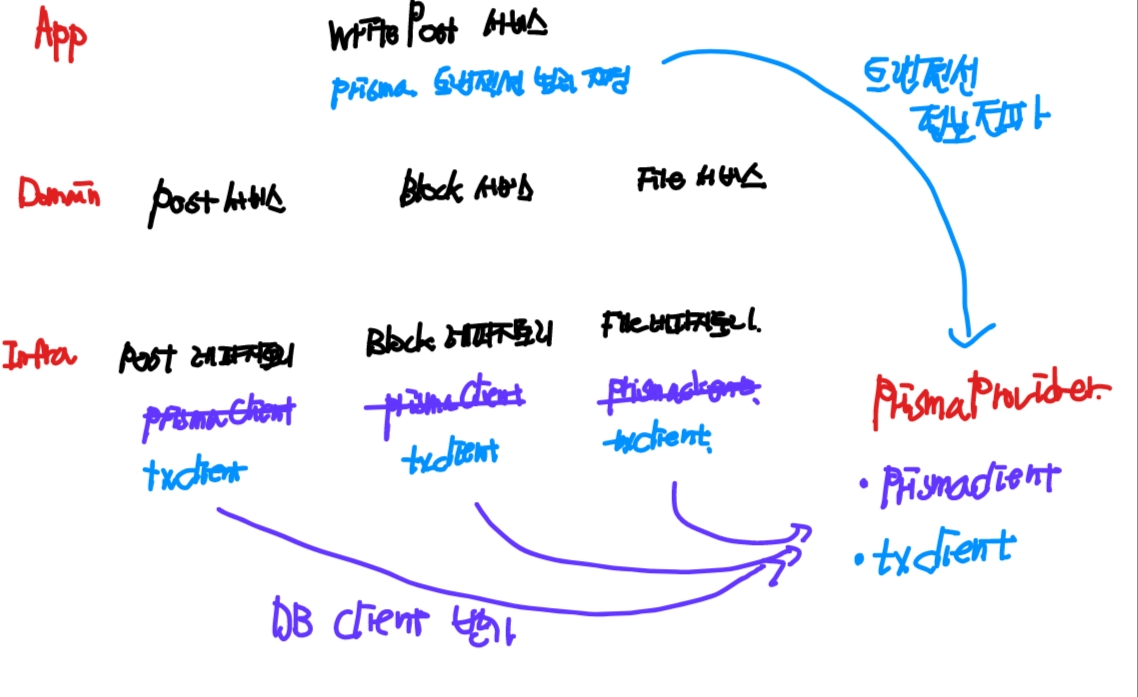 App
WritePost 서비스
prisma 트랜잭션 범위 지정
트랜잭션
정보 전파
Domain
post 서비스
Block 서비스
File 서비스
Infra
Post 레파지토리
Block 레파지토리
File 레파지토리
prismaClient
prismaClient
prismaclient
txclient
txclient
txclient
PrismaProvider
• Prismaclient
• txclient
DB Client 받기